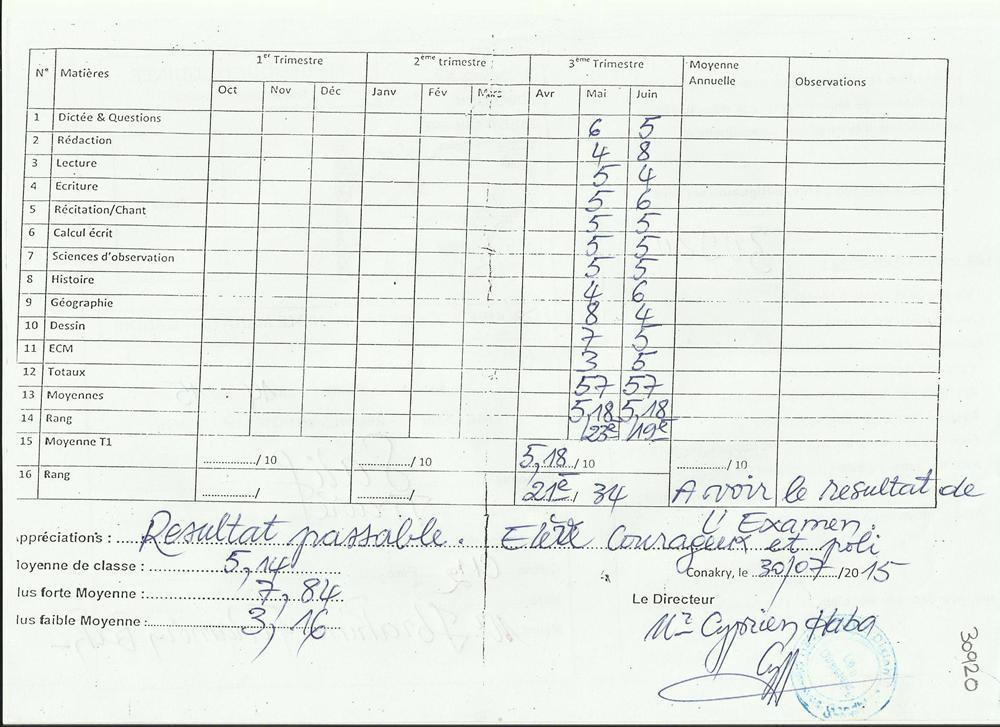 N° Matières 1er Trimestre 2ème trimestre 3ème Trimestre Moyenne Annuelle Observations
Oct Nov Déc Janv Fév Mars Avr Mai Juin
1 Dictée & Questions 6 5
2 Rédaction 4 8
3 Lecture 5 4
4 Ecriture 5 6
5 Récitation/Chant 5 5
6 Calcul écrit 5 5
7 Sciences d'observation 5 5
8 Histoire 4 6
9 Géographie 8 4
10 Dessin 7 5
11 ECM 3 5
12 Totaux 57 57
13 Moyennes 5,18 5,18
14 Rang 23e 19e
15 Moyenne T1 ............../ 10 ............../ 10 5,18 / 10 ............/ 10
16 Rang ............../ ............../ 21e / 34 A voir le resultat de
L'Examen.
ppréciations : Resultat passable. Elève Courageux et poli
loyenne de classe : 5,14
Conakry, le 30/07 /2015
lus forte Moyenne : 7,84
Le Directeur
lus faible Moyenne : 3,16
Mr Cyprien Haba
30920